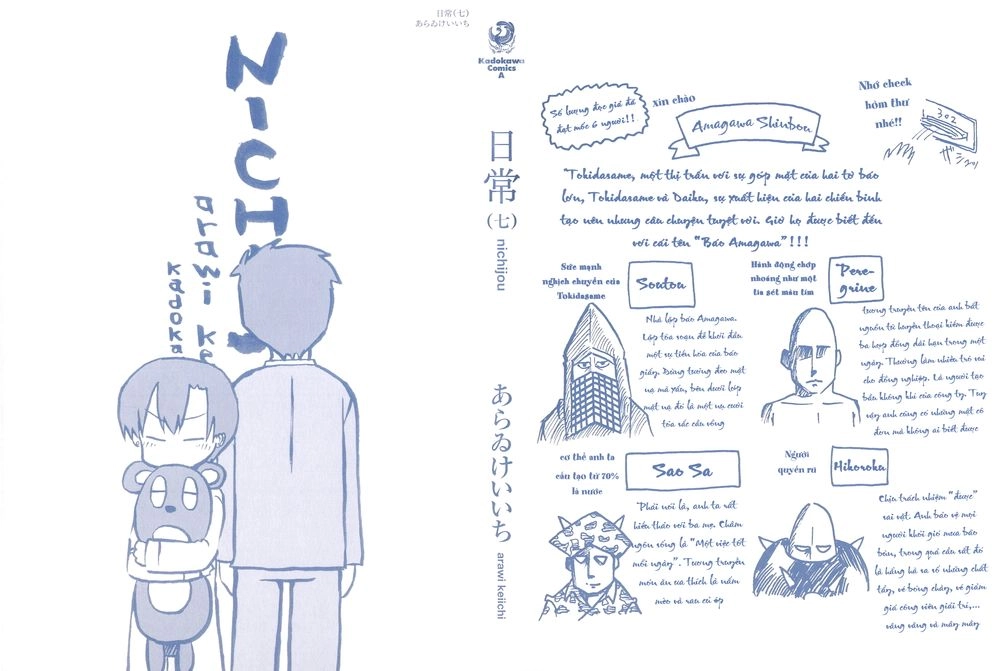 日常(七)
あらゐけいいち
NICHIJ
arawi ke
kadoka
Kadokawa
Comics
A
日常
(七)
nichijou
あらゐけいいち
arawi keiichi
Số lượng độc giả đã
đạt mốc 6 người!!
xin chào
Amagawa Shinbou
Nhớ check
hòm thư
nhé!!
302
"Tokidasame, một thị trấn với sự góp mặt của hai tờ báo
lớn, Tokidasame và Daiku, sự xuất hiện của hai chiến binh
tạo nên những câu chuyện tuyệt vời. Giờ họ được biết đến
với cái tên "Báo Amagawa"!!!
Sức mạnh
nghịch chuyển của
Tokidasame
Soutou
Nhà lập báo Amagawa.
Lập tòa soạn để khơi đầu
một sự tiến hóa của báo
giấy. Đừng tưởng đeo mặt
nạ mà xấu, bên dưới lớp
mặt nạ đó là một nụ cười
tỏa sắc cầu vồng
Hành động chớp
nhoáng như một
tia sét màu tím
Pere-
grine
tương truyền tên của anh bắt
nguồn từ huyền thoại kiếm được
ba hợp đồng dài hạn trong một
ngày. Thường làm nhiều trò vui
cho đồng nghiệp. Là người tạo
bầu không khí của công ty. Tuy
vậy anh cũng có những mặt cô
đơn mà không ai biết được
cơ thể anh ta
cấu tạo từ 70%
là nước
Sao Sa
Phải nói là, anh ta rất
hiếu thảo với ba mẹ. Châm
ngôn sống là "Một việc tốt
mỗi ngày". Tương truyền
món ăn ưa thích là nấm
mèo và rau củ ép
Người
quyến rũ
Hikoroku
Chịu trách nhiệm "được"
sai vặt. Anh bảo vệ mọi
người khỏi gió mưa bão
bùn, trong quá cầu sắt đó
là hằng hà sa số những chất
tẩy, vé bóng chày, vé giảm
giá công viên giải trí,...
vâng vâng và mây mây